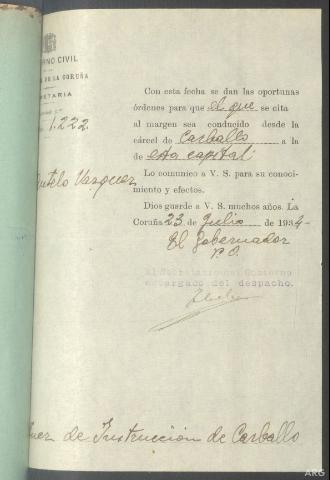 ERNO CIVIL
DE LA CORUÑA
ETARIA
1.222
Con esta fecha se dan las oportunas
órdenes para que el que se cita
al margen sea conducido desde la
cárcel de Carballo a la
de esta capital
Vazquez
Lo comunico a V. S. para su conoci-
miento y efectos.
Dios guarde a V. S. muchos años. La
Coruña 23 de Julio de 1934-
El Gobernador
P. O.
El Secretario del Gobierno
encargado del despacho.
de Instrucción de Carballo
ARG